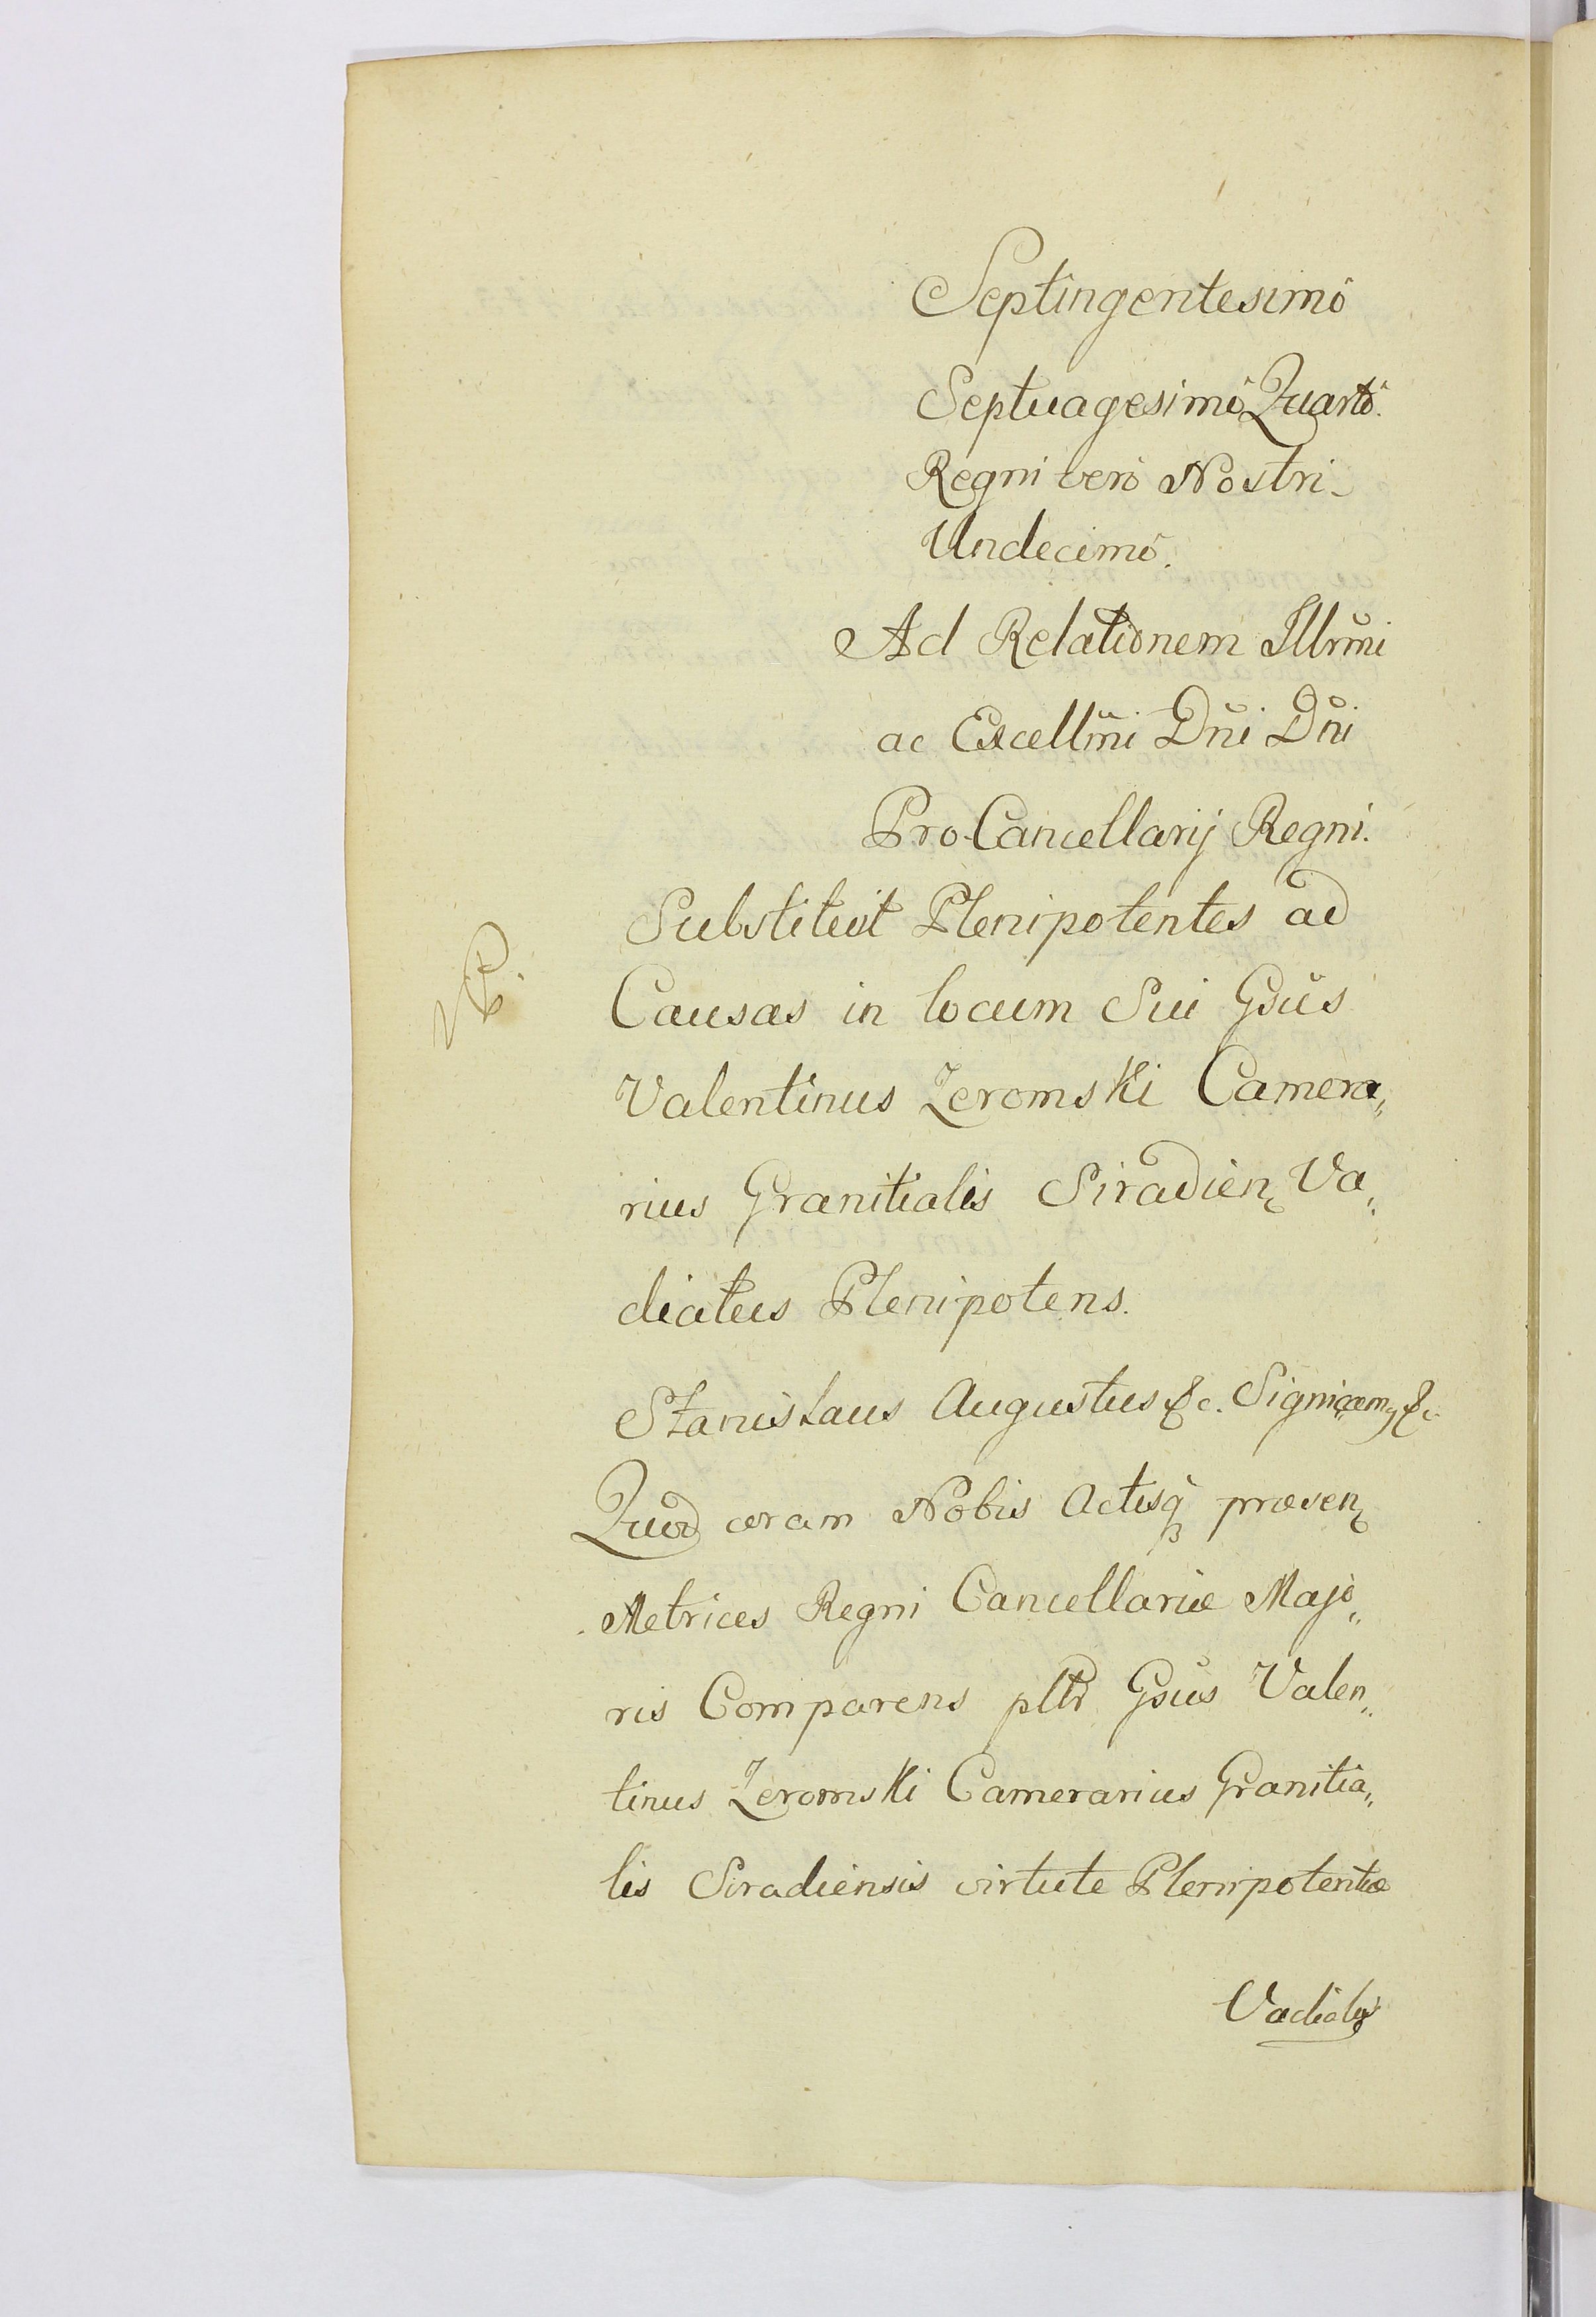 Septingentesimô
Septuagesimô Quartô.
Regni verò Nostri
Undecimô.
Ad Relationem Illrm̃i
ac Excellm̃i Dn̄i Dn̄i
Pro-Cancellarij Regni.
Substituit Plenipotentes ad
Causas in locum Sui Gsũs
Valentinus Zeromski Camera„
rius Granitialis Siradien̨ Va„
diatus Plenipotens.
Stanislaus Augustus &c. Signicam̨ &c
Quod coram Nobis Actisq̀ præsen̨
Metrices Regni Cancellariæ Majo„
ris Comparens pltr Gsũs Valen„
tinus Zeromski Camerarius Granitia„
lis Siradiensis virtute Plenipotentiæ